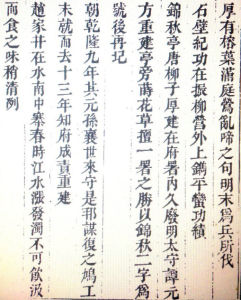 厚有榕葉滿庭鶯亂啼之句明末爲兵所伐
石壁紀功在振柳營外上鐫平蠻功績
錦秋亭唐柳子厚建在府署內久廢明太守譚元
方重建亭旁蒔花草擅一署之勝以錦秋二字爲
號後再圮
朝乾隆九年其元孫襄世來守是邦謀復之鳩工
未就而去十三年知府成貴重建
趙家井在水南中寨春時江水漲發濁不可飲汲
而食之味稍清冽